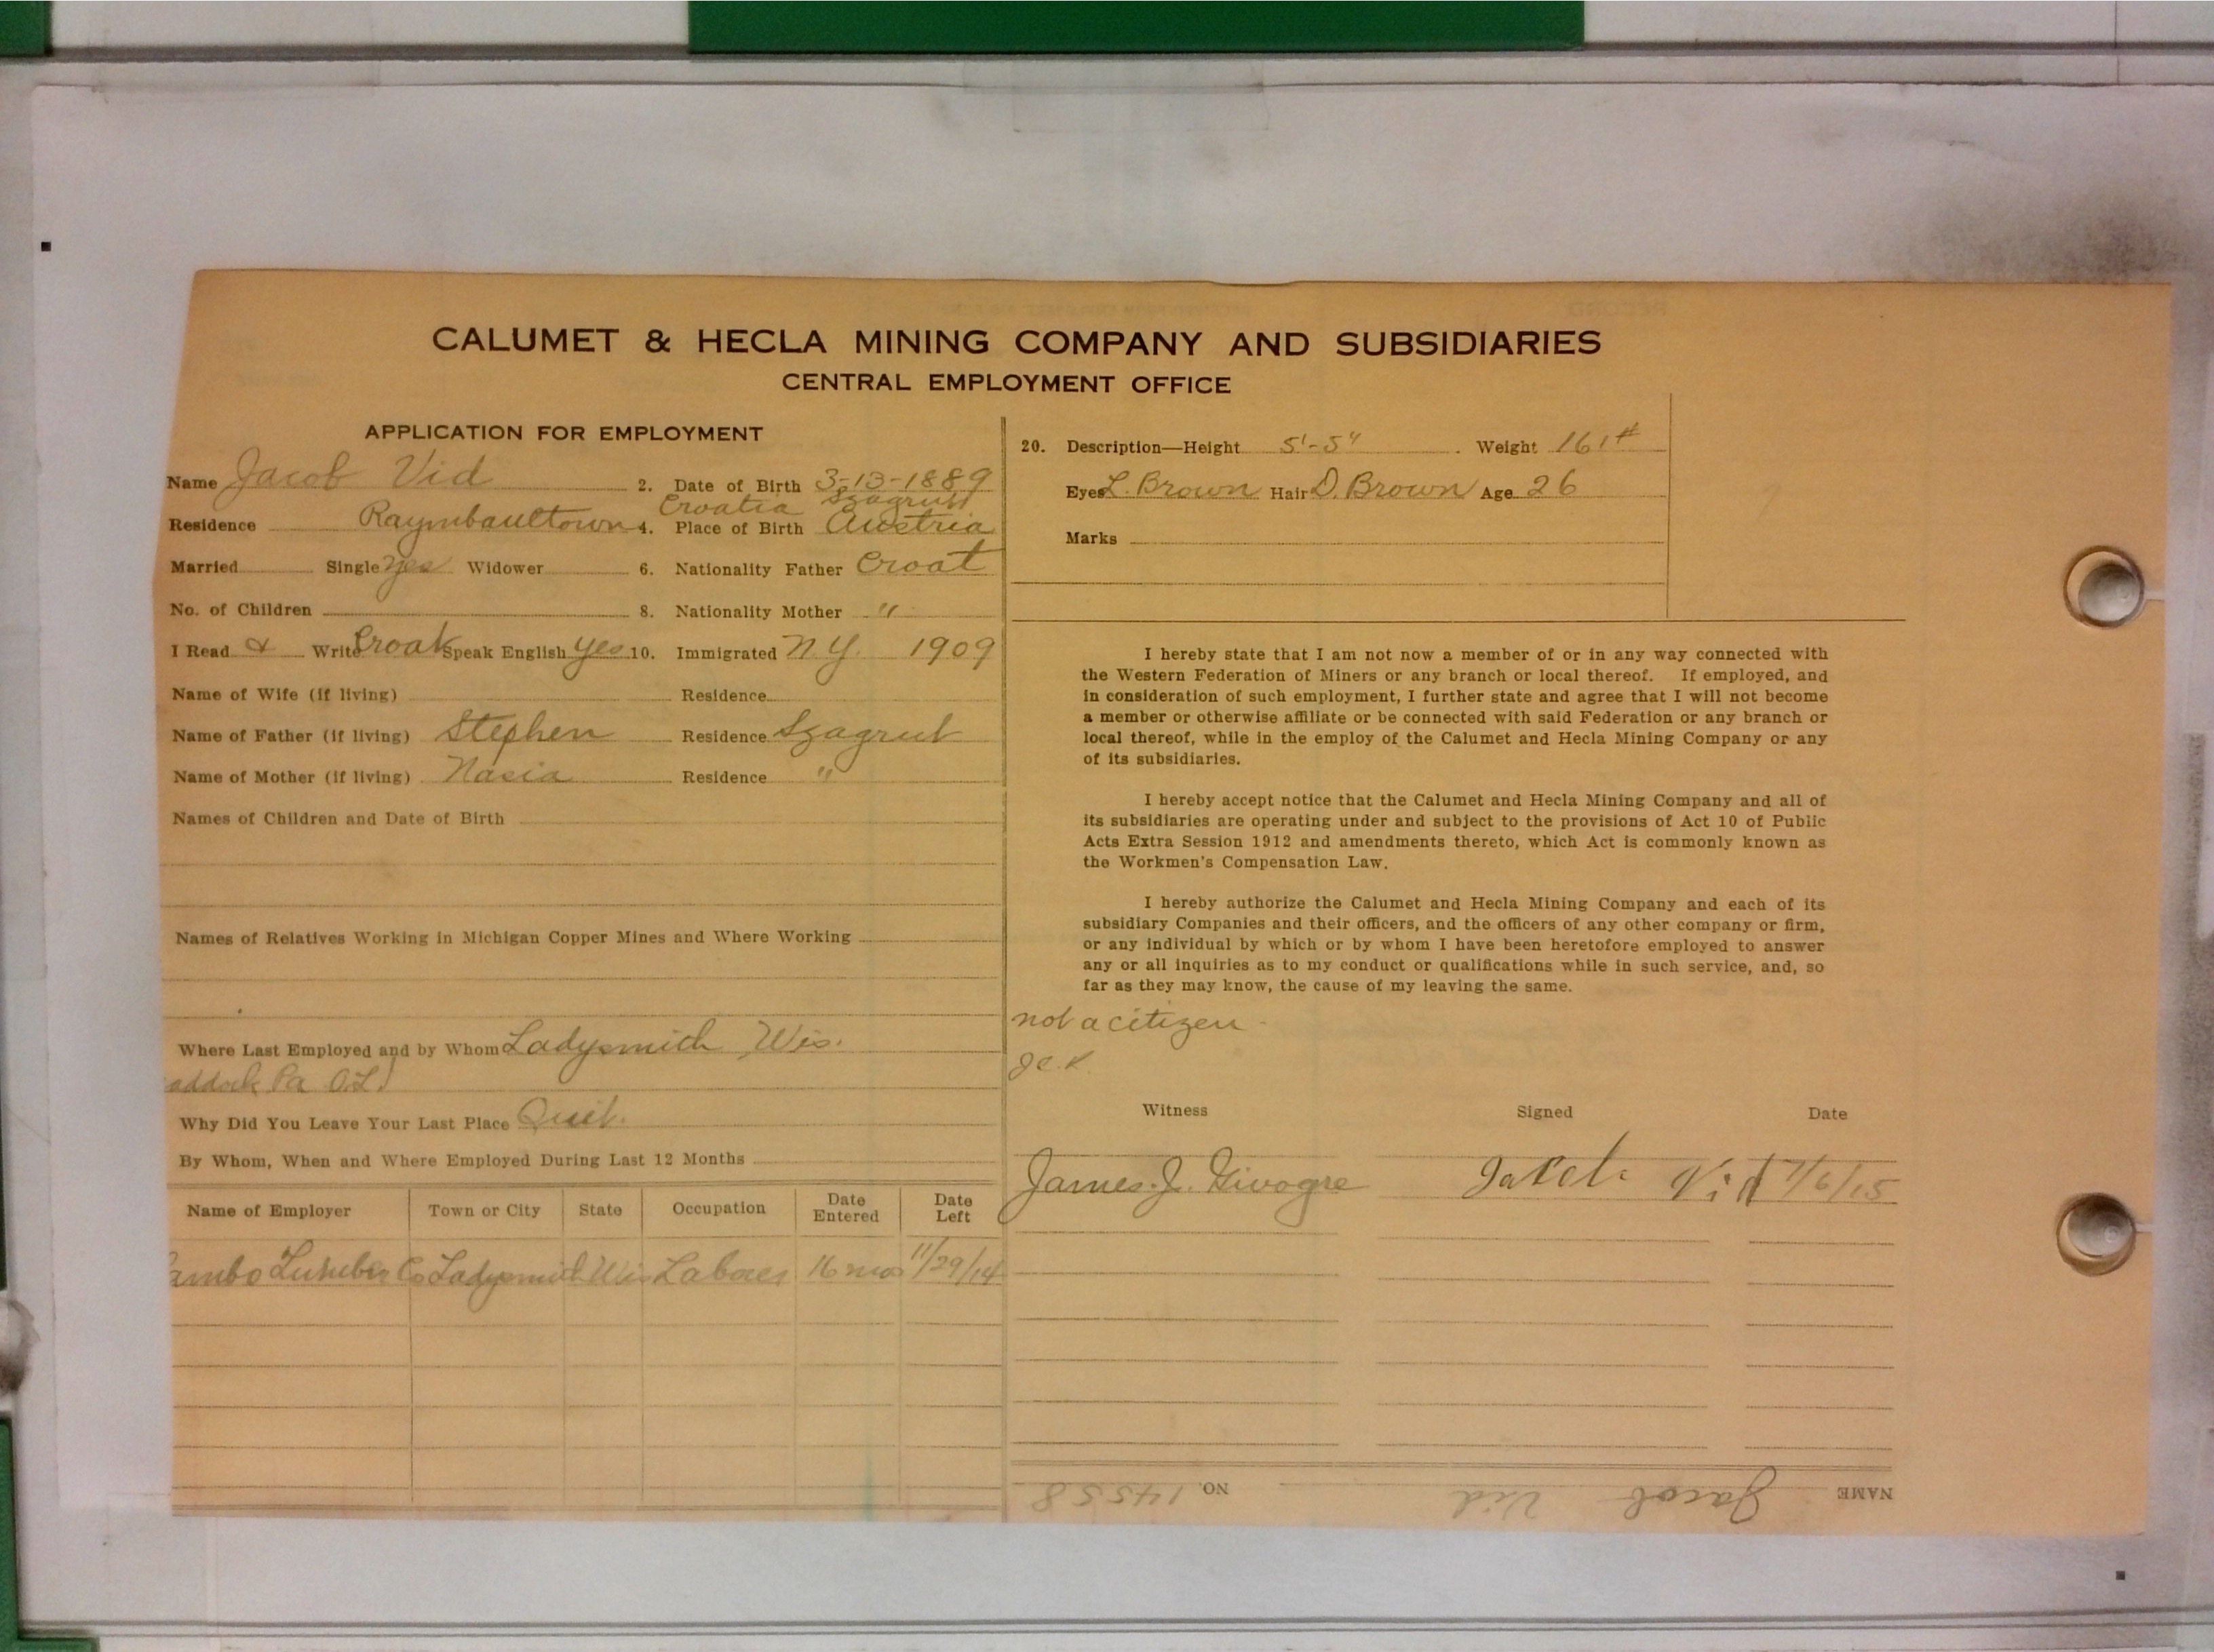 CALUMET & HECLA MINING COMPANY AND SUBSIDIARIES
CENTRAL EMPLOYMENT OFFICE
APPLICATION FOR EMPLOYMENT
Name Jacob Vid 2. Date of Birth 3-13-1889
Croatia
Residence Raymbaultown 4. Place of Birth Austria
Married Single yes Widower 6. Nationality Father Croat
No. of Children 8. Nationality Mother "
I Read & Write Croat Speak English yes 10. Immigrated N.Y. 1909
Name of Wife (if living) Residence
Name of Father (if living) Stephen Residence Szagrub
Name of Mother (if living) Residence "
Names of Children and Date of Birth
Names of Relatives Working in Michigan Copper Mines and Where Working
Where Last Employed and by Whom Ladysmith Wis.
addock Pa
Why Did You Leave Your Last Place Quit.
By Whom, When and Where Employed During Last 12 Months
Name of Employer Town or City State Occupation Date Entered Date Left
ambo Lumber Co Ladysmith Wis Laborer 16 mos 11/29/14
20. Description—Height 5'-5" Weight 161#
Eyes L. Brown Hair D. Brown Age 26
Marks
I hereby state that I am not now a member of or in any way connected with
the Western Federation of Miners or any branch or local thereof. If employed, and
in consideration of such employment, I further state and agree that I will not become
a member or otherwise affiliate or be connected with said Federation or any branch or
local thereof, while in the employ of the Calumet and Hecla Mining Company or any
of its subsidiaries.
I hereby accept notice that the Calumet and Hecla Mining Company and all of
its subsidiaries are operating under and subject to the provisions of Act 10 of Public
Acts Extra Session 1912 and amendments thereto, which Act is commonly known as
the Workmen's Compensation Law.
I hereby authorize the Calumet and Hecla Mining Company and each of its
subsidiary Companies and their officers, and the officers of any other company or firm,
or any individual by which or by whom I have been heretofore employed to answer
any or all inquiries as to my conduct or qualifications while in such service, and, so
far as they may know, the cause of my leaving the same.
not a citizen -
Witness Signed Date
James. J. Vid 7/6/15
NAME Jacob Vid NO. 14558